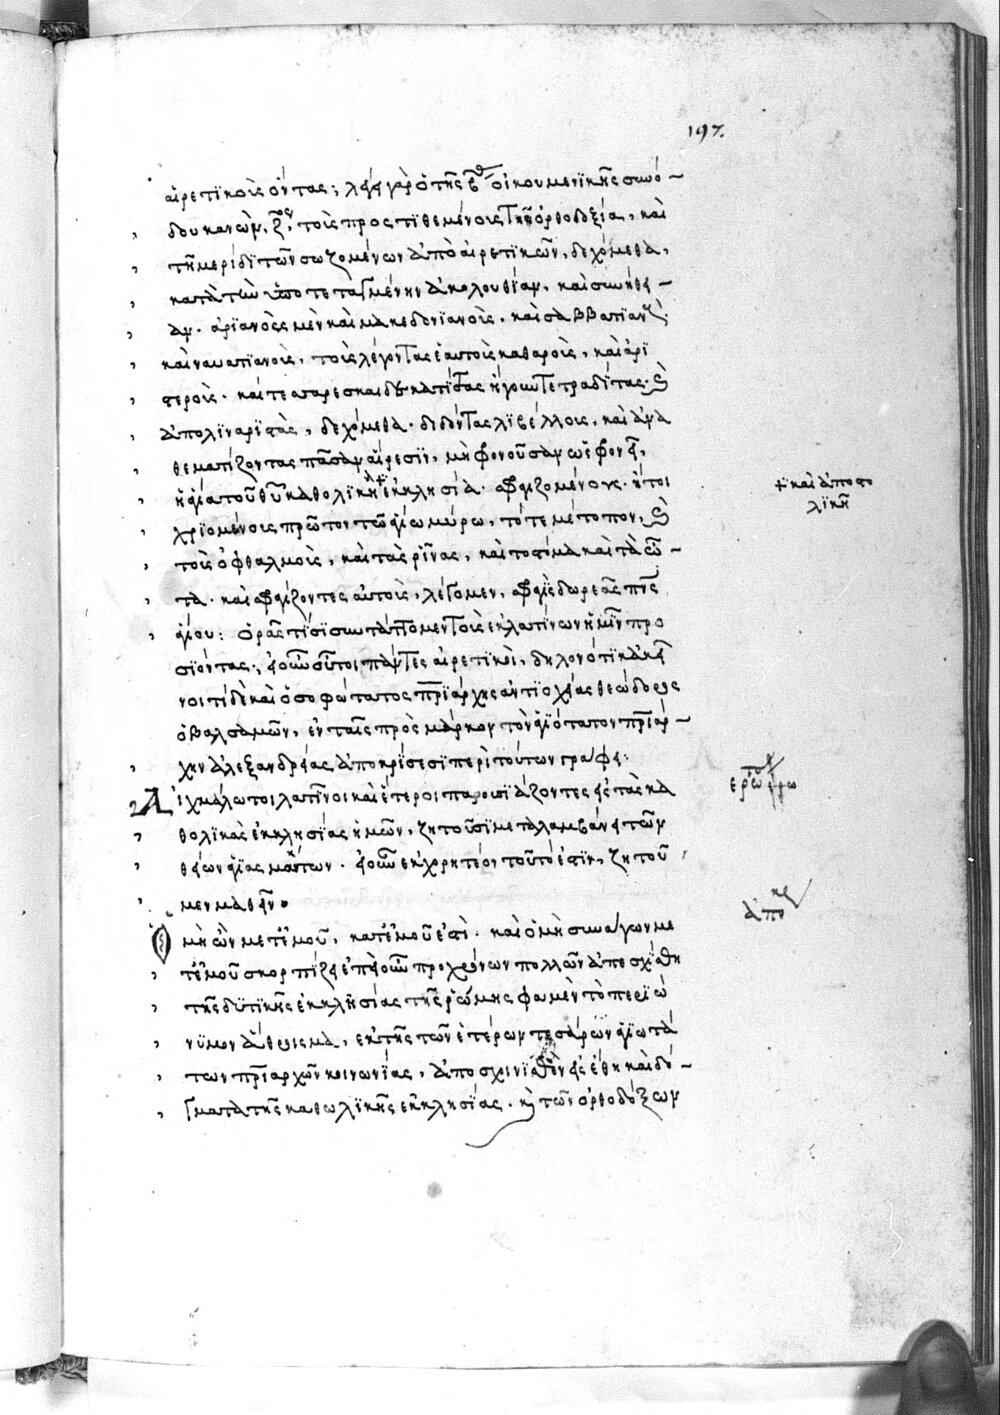 197.
αἱρετικοὺς ὄντας; λέγει γὰρ ὁ τῆς β οἰκουμενικῆς συνό-
δου κανὼν, ζος, τοὺς προστιθεμένους τῆ ὀρθοδοξία, καὶ
τῆ μερίδι τῶν σωζομένων ἀπὸ αἱρετικῶν, δεχόμεθα,
κατὰ τὴν ὑποτεταγμένην ἀκολουθίαν, καὶ συνήθει-
αν. ἀρϊανοὺς μὲν καὶ μακεδονϊανοὺς. καὶ σαββατϊανοὺς
καὶ ναυατϊανοὺς, τοὺς λέγοντας ἑαυτοὺς καθαροὺς, καὶ ἀρϊ
στεροὺς. καὶ τεσσαρεσκαιδεκατίτας ἤγουν τετραδίτας. καὶ
ἀπολιναριστὰς, δεχόμεθα. διδόντας λιβέλλους, καὶ ἀνα
θεματίζοντας πᾶσαν αἵρεσϊν, μὴ φρονοῦσαν ὡς φρονεῖ,
ἡ ἁγία τοῦ θῦ καθολϊκὴ + ἐκκλησία. σφραγιζομένους. ἤτοι
+ καὶ ἀποστο
λικὴ
χρϊομένους πρῶτον τῶ ἁγίω μύρω, τό τε μέτοπον, καὶ
τοὺς ὀφθαλμοὺς, καὶ τὰς ρῖνας, καὶ τὸ στόμα καὶ τὰ ὦ-
τα. καὶ σφραγίζοντες αὐτοὺς, λέγομεν, σφραγὶς δωρεᾶς πνς
ἁγίου: ὁρᾶς τίσϊ συντάττομεν τοὺς ἐκ λατίνων ἡμῖν προ
σϊόντας., εἰ οὖν οὗτοι πάντες αἱρετϊκοὶ, δηλονότι κἀκεῖ
νοι τί δὲ καὶ ὁ σοφώτατος πρϊάρχης ἀντϊοχείας θεώδορος
ὁ βαλσαμῶν, ἐν ταῖς πρὸς μάρκον τὸν ἁγιότατον πρϊάρ-
χην ἀλεξανδρείας ἀποκρίσεσϊ περὶ τούτων γράφει:
Αἰχμάλωτοι λατῖνοι καὶ ἕτεροι παρουσϊάζοντες εἰς τὰς κα
ἐρώτησις
θολϊκὰς ἐκκλησίας ἡμῶν, ζητοῦσϊ μεταλαμβάνειν τῶν
θείων ἁγιασμάτων. εἰ οὖν ἐκχορητέον τοῦτό ἐστϊν, ζητοῦ
μεν μαθεῖν.
ἀπόκρ
Ὁ μὴ ὢν μετ' ἐμοῦ, κατ' ἐμοῦ ἐστὶ. καὶ ὁ μὴ συνάγων με
τ' ἐμοῦ σκορπίζει ἐπεὶ οὖν πρὸ χρόνων πολλῶν ἀπεσχίσθη
τῆς δυτϊκῆς ἐκκλησίας τῆς ρώμης φαμὲν τὸ περϊώ
νϋμον ἄθροισμα, ἐκ τῆς τῶν ἑτέρων τεσάρων ἁγιωτά
των πρϊαρχῶν κοινωνίας, ἀποσχινϊσθὲν εἰς ἔθη καὶ δό-
γματα τῆς καθωλϊκῆς ἐκκλησίας. καὶ τῶν ὀρθοδόξων